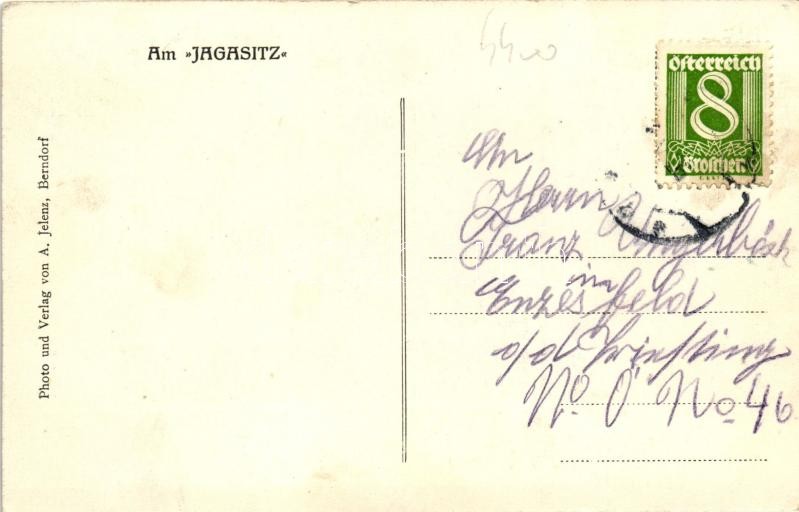 Am »JAGASITZ«
4400
Österreich
8
Groschen
Photo und Verlag von A. Jelenz, Berndorf
An
Herrn
Franz
in
Enzesfeld
a/d Triesting
N. Ö No 46